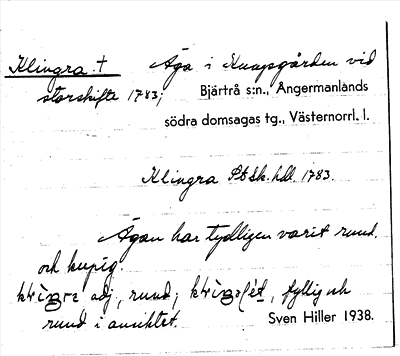 Klingra † Äga i Knapsgården vid
storskifte 1783; Bjärtrå s:n., Ångermanlands
södra domsagas tg., Västernorrl. l.
Klingra Stsk. hdl. 1783.
Ägan har tydligen varit rund
och kupig.
adj., rund; fyllig och
rund i ansiktet. Sven Hiller 1938.